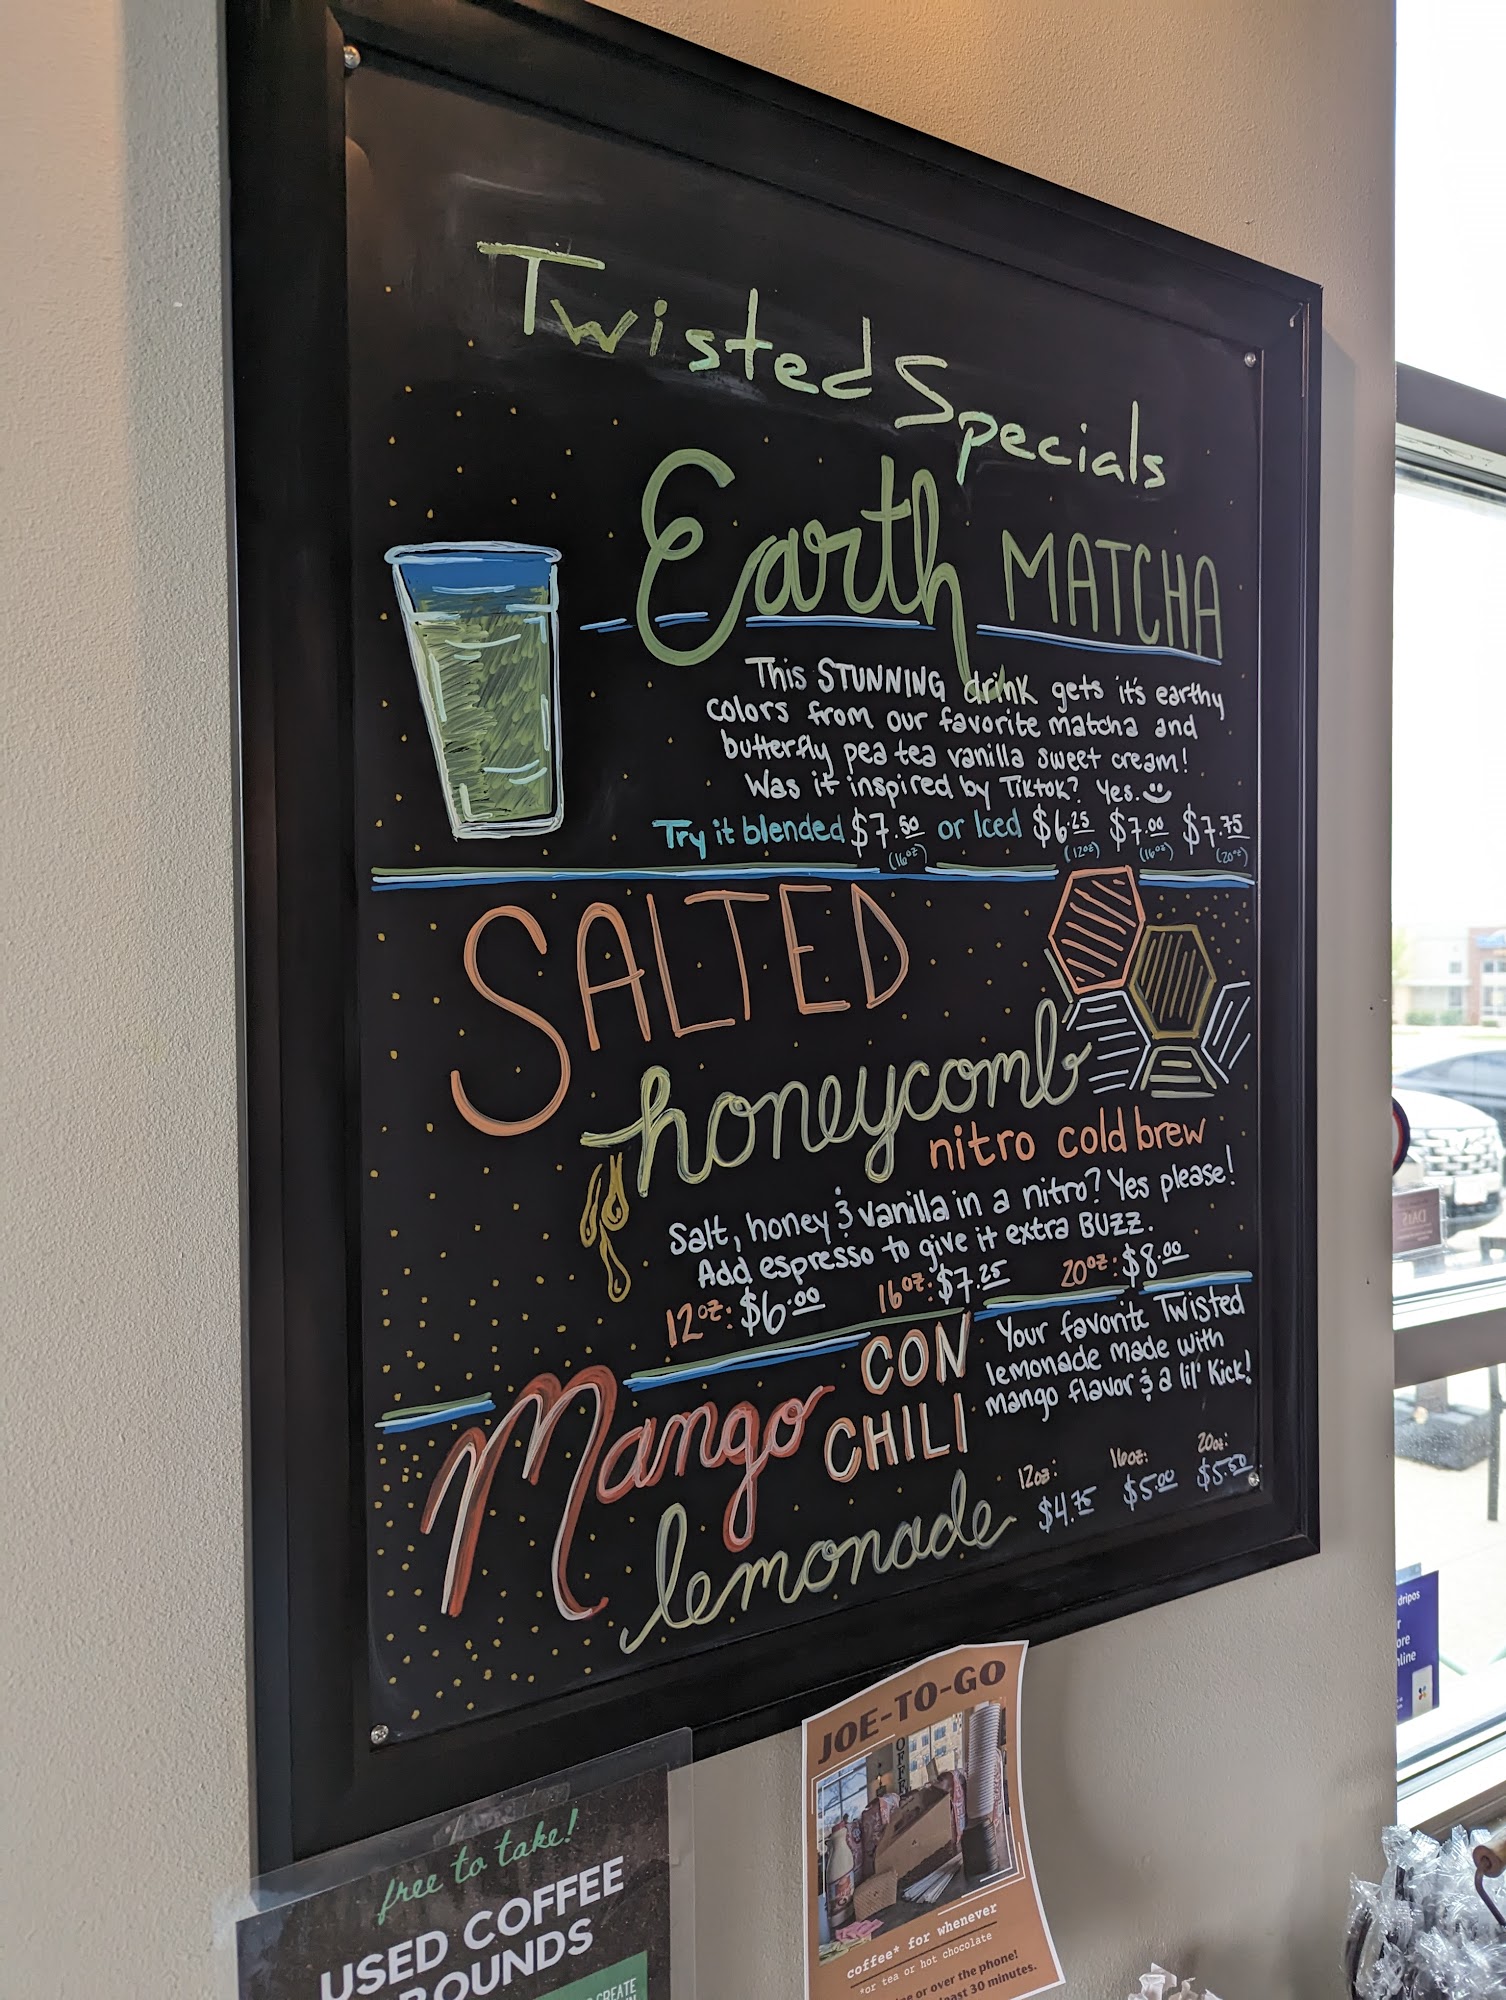 Twisted Specials
Earth MATCHA
This STUNNING drink gets it's earthy
colors from our favorite matcha and
butterfly pea tea vanilla sweet cream!
Was it inspired by TikTok? Yes.
Try it blended $7.50 or Iced $6.25 $7.00 $7.75
(16oz) (12oz) (16oz) (20oz)
SALTED
honeycomb
nitro cold brew
Salt, honey & vanilla in a nitro? Yes please!
Add espresso to give it extra BUZZ.
12oz: $6.00 16oz: $7.25 20oz: $8.00
Mango CON
CHILI
lemonade
Your favorite Twisted
lemonade made with
mango flavor & a lil' kick!
12oz: 16oz: 20oz:
$4.75 $5.00 $5.50
JOE-TO-GO
coffee* for whenever
*or tea or hot chocolate
or over the phone!
30 minutes.
free to take!
USED COFFEE
CREATE
dripos